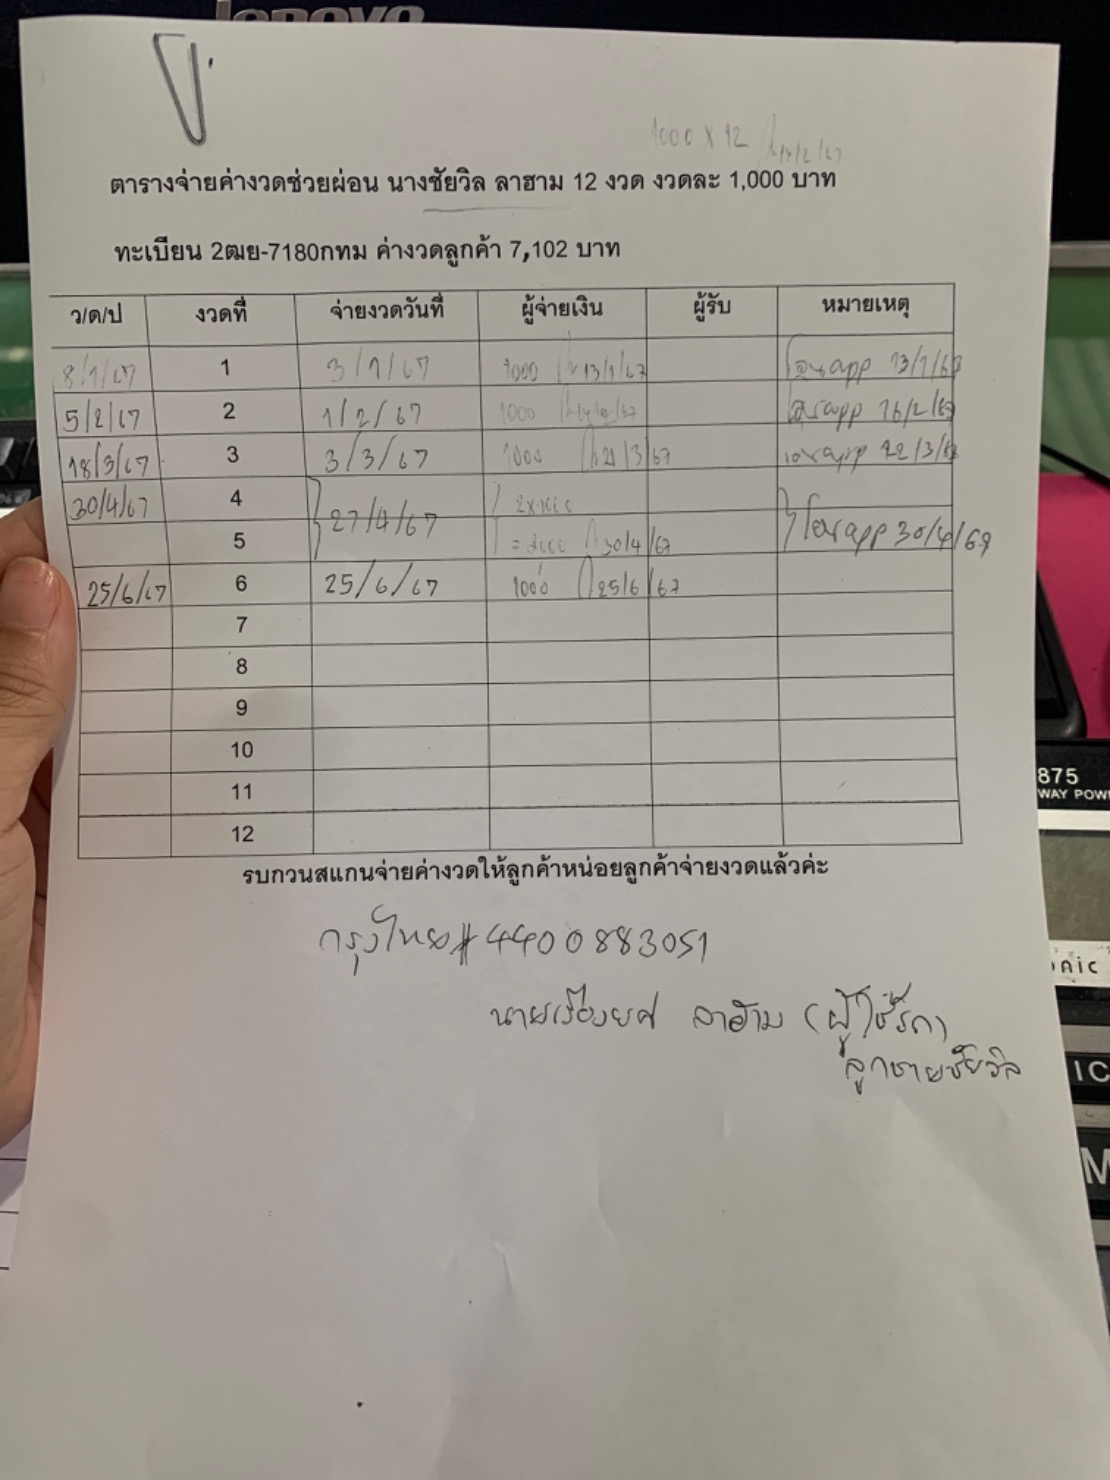 lenovo
1000 X 12 14/2/67
ตารางจ่ายค่างวดช่วยผ่อน นางชัยวิล ลาฮาม 12 งวด งวดละ 1,000 บาท
ทะเบียน 2ฒย-7180กทม ค่างวดลูกค้า 7,102 บาท
ว/ด/ป งวดที่ จ่ายงวดวันที่ ผู้จ่ายเงิน ผู้รับ หมายเหตุ
8/1/67 1 3/1/67 1000 13/1/67 โอนapp 13/1/67
5/2/67 2 1/2/67 1000 14/2/67 โอนapp 16/2/67
18/3/67 3 3/3/67 1000 21/3/67 โอนapp 22/3/67
30/4/67 4 27/4/67 2x1000 โอนapp 30/4/67
5 = 2000 30/4/67
25/6/67 6 25/6/67 1000 25/6/67
7
8
9
10
11
12
รบกวนสแกนจ่ายค่างวดให้ลูกค้าหน่อยลูกค้าจ่ายงวดแล้วค่ะ
กรุงไทย# 4400883051
นายเรืองยศ ลาฮาม (ผู้ใช้รถ)
ลูกชายชัยวิล
875
WAY POW
onic
IC
M